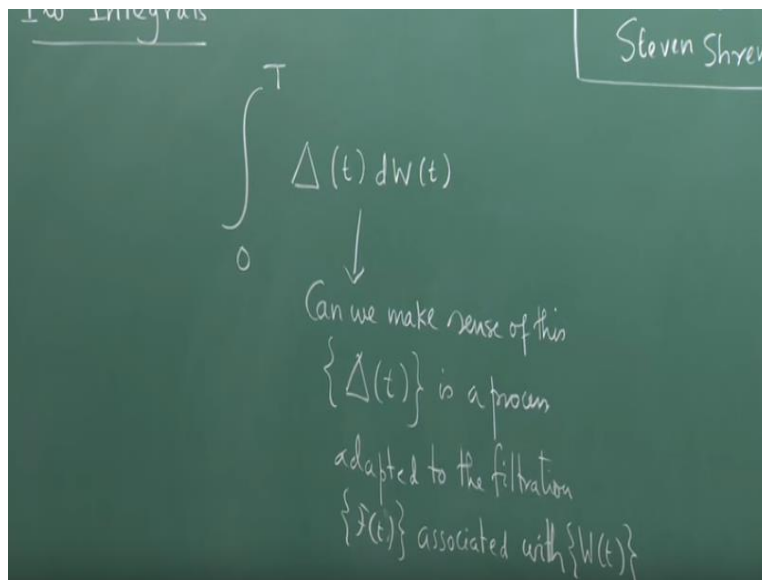 Integrals
Steven
T
∫ Δ(t) dW(t)
0
Can we make sense of this
{Δ(t)} is a process
adapted to the filtration
{F(t)} associated with {W(t)}